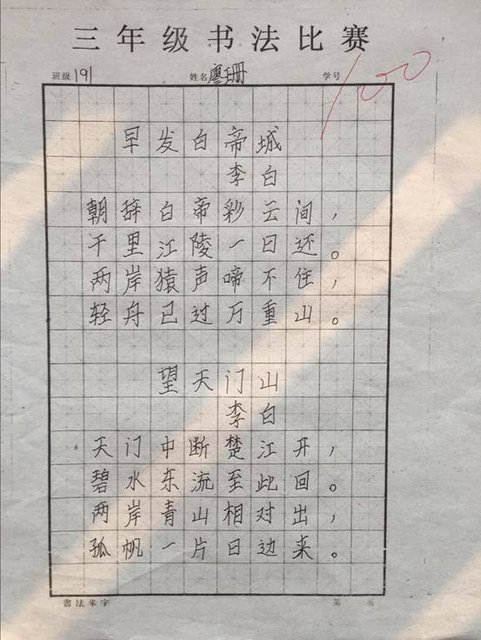 三年级书法比赛
班级 191 姓名 廖珊 学号
100
早发白帝城
李白
朝辞白帝彩云间，
千里江陵一日还。
两岸猿声啼不住，
轻舟已过万重山。
望天门山
李白
天门中断楚江开，
碧水东流至此回。
两岸青山相对出，
孤帆一片日边来。
書法米字 第 页